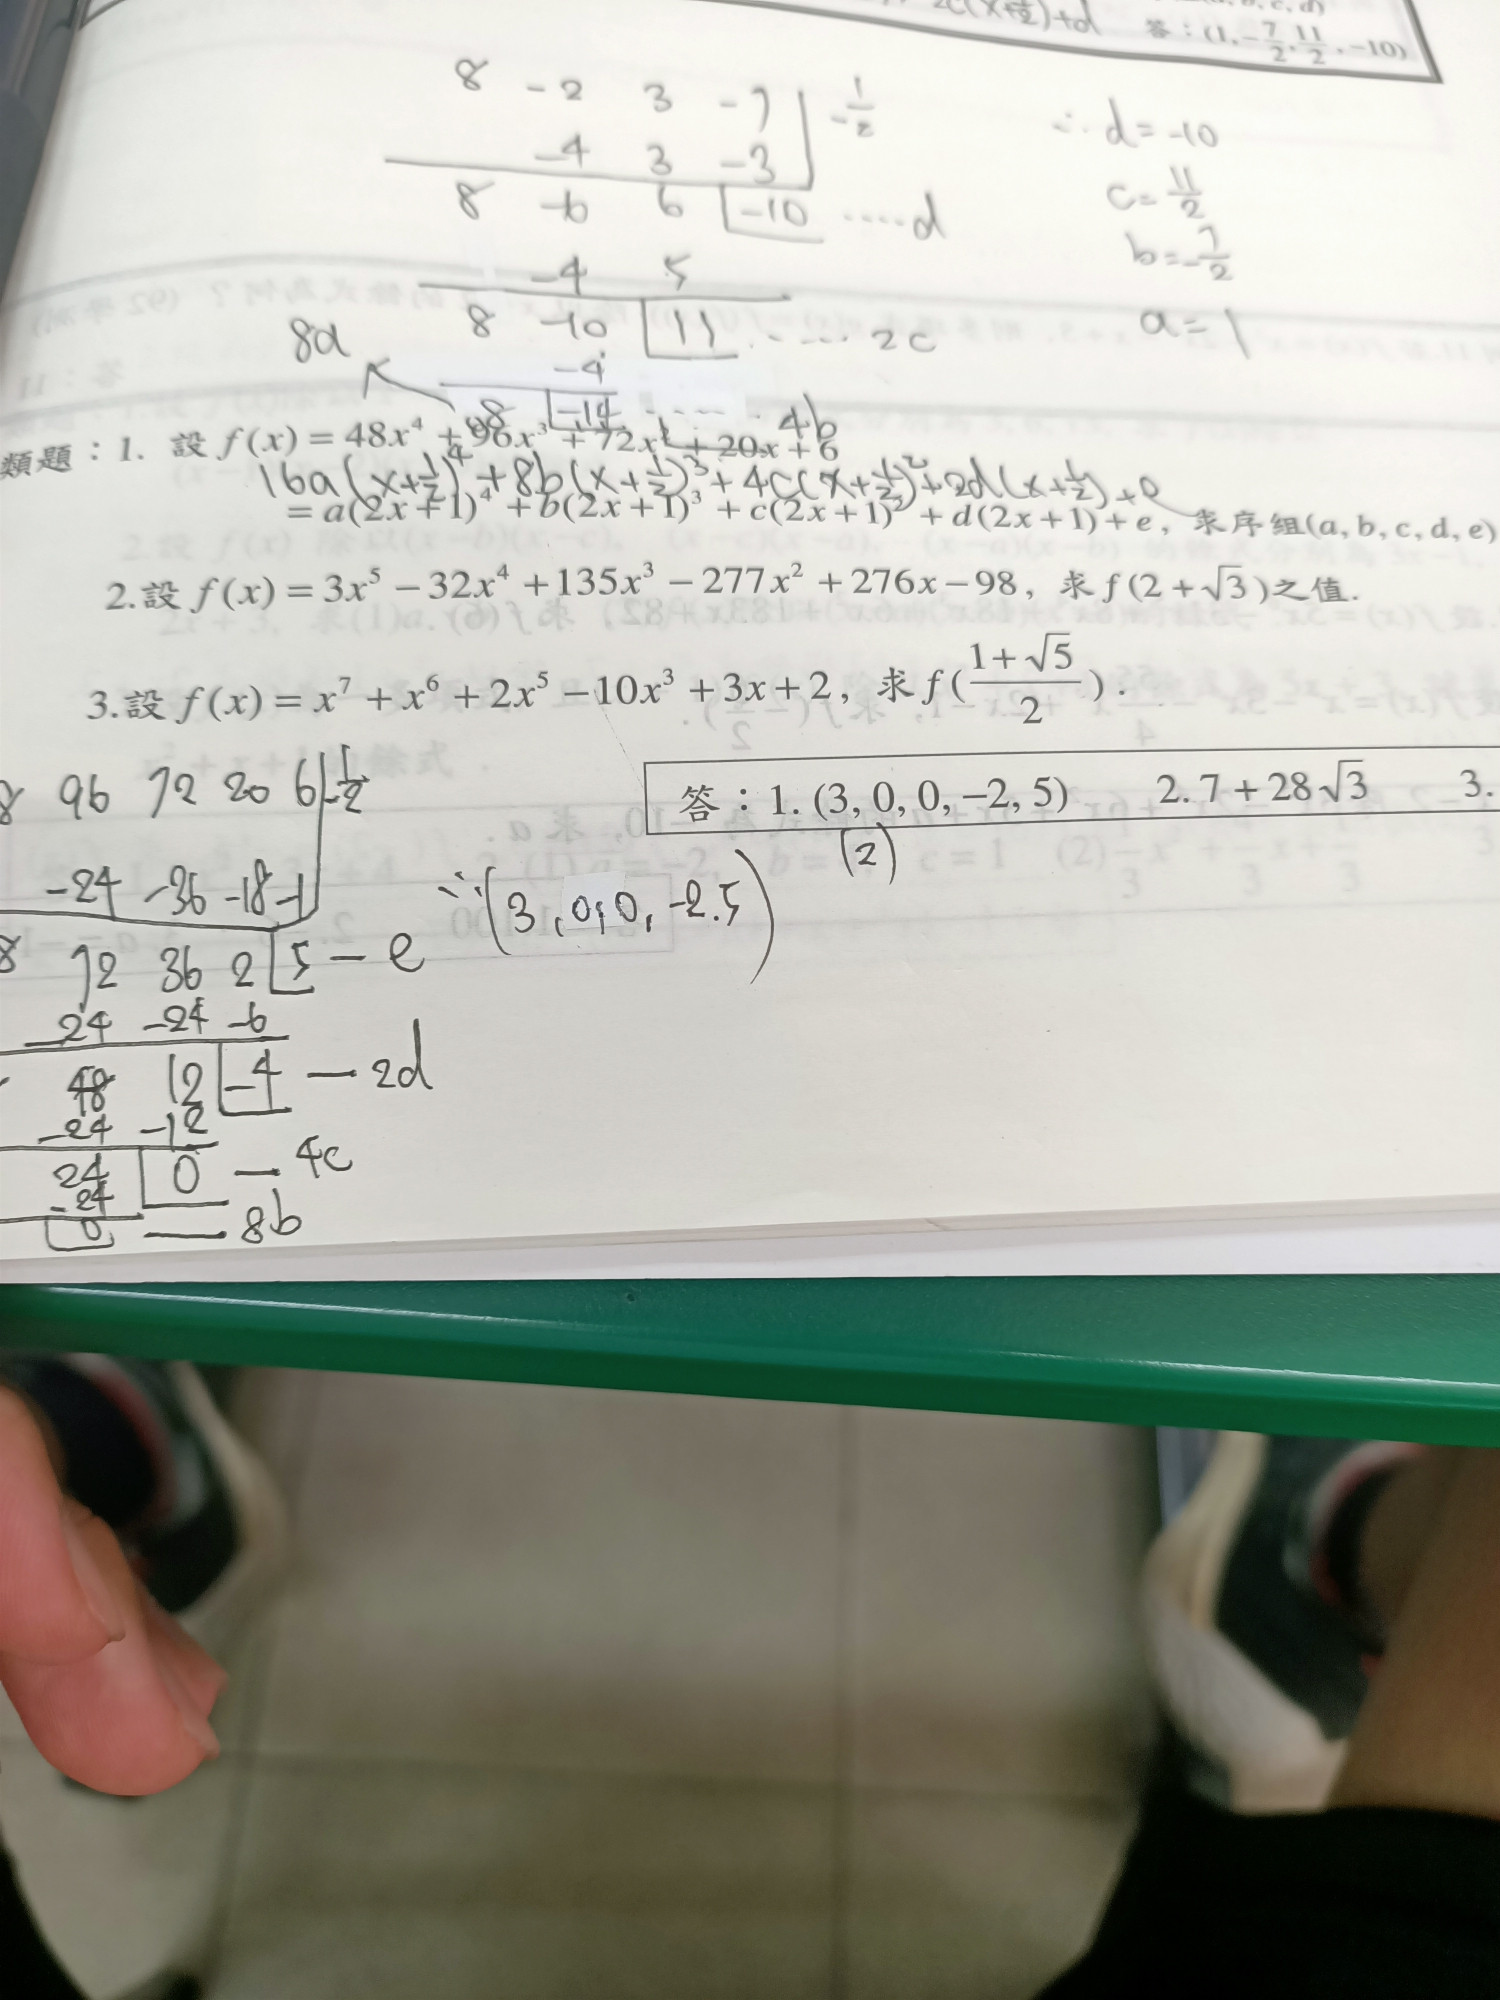 2c(x+½)+d 答：(1, -7/2, 11/2, -10)
8 -2 3 -7 | -1/2
-4 3 -3
8 -6 6 -10 ....d
-4 5
8 -10 11 ..... 2c
-4
8 -14 ..... 4b
8a
∴ d=-10
c=11/2
b=-7/2
a=1
類題：1. 設 f(x) = 48x⁴ + 96x³ + 72x² + 20x + 6
16a(x+½)⁴+8b(x+½)³+4c(x+½)²+2d(x+½)+e
= a(2x+1)⁴ + b(2x+1)³ + c(2x+1)² + d(2x+1) + e, 求序組(a, b, c, d, e)
2.設 f(x) = 3x⁵ − 32x⁴ + 135x³ − 277x² + 276x − 98, 求 f(2+√3)之值.
3.設 f(x) = x⁷ + x⁶ + 2x⁵ − 10x³ + 3x + 2, 求 f((1+√5)/2).
答：1. (3, 0, 0, −2, 5) 2. 7 + 28√3 3.
(2)
8 96 72 20 6 | -1/2
-24 -36 -18 -1
8 72 36 2 5 — e
-24 -24 -6
48 12 -4 — 2d
-24 -12
24 0 — 4c
-24
0 — 8b
∴(3, 0, 0, -2.5)